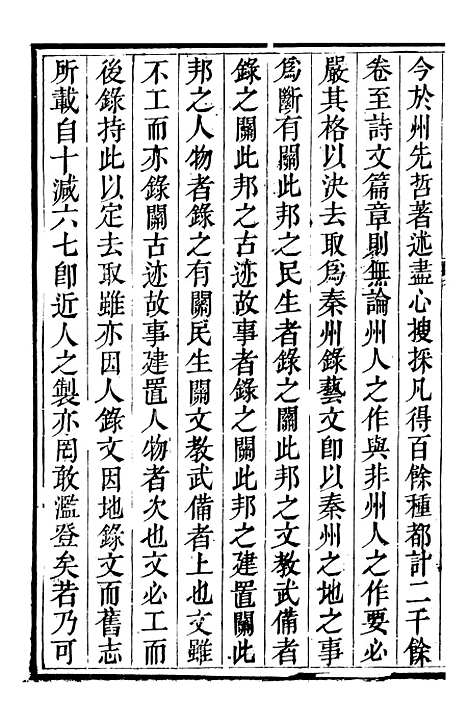 今於州先哲著述盡心搜採凡得百餘種都計二千餘
卷至詩文篇章則無論州人之作與非州人之作要必
嚴其格以決去取爲秦州錄藝文卽以秦州之地之事
爲斷有關此邦之民生者錄之關此邦之文教武備者
錄之關此邦之古迹故事者錄之關此邦之建置關此
邦之人物者錄之有關民生關文教武備者上也文雖
不工而亦錄關古迹故事建置人物者次也文必工而
後錄持此以定去取雖亦因人錄文因地錄文而舊志
所載自十減六七卽近人之製亦罔敢濫登矣若乃可